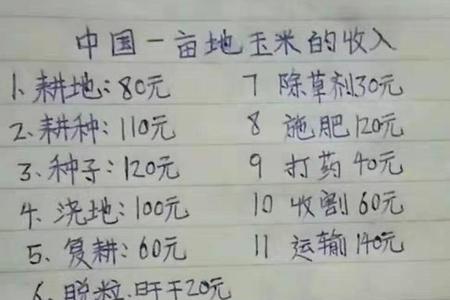 中国一亩地玉米的收入
1、耕地:80元
2、耕种:110元
3、种子:120元
4、浇地:100元
5、复耕:60元
6、脱粒、旰干20元
7 除草剂30元
8 施肥120元
9 打药40元
10 收割60元
11 运输140元